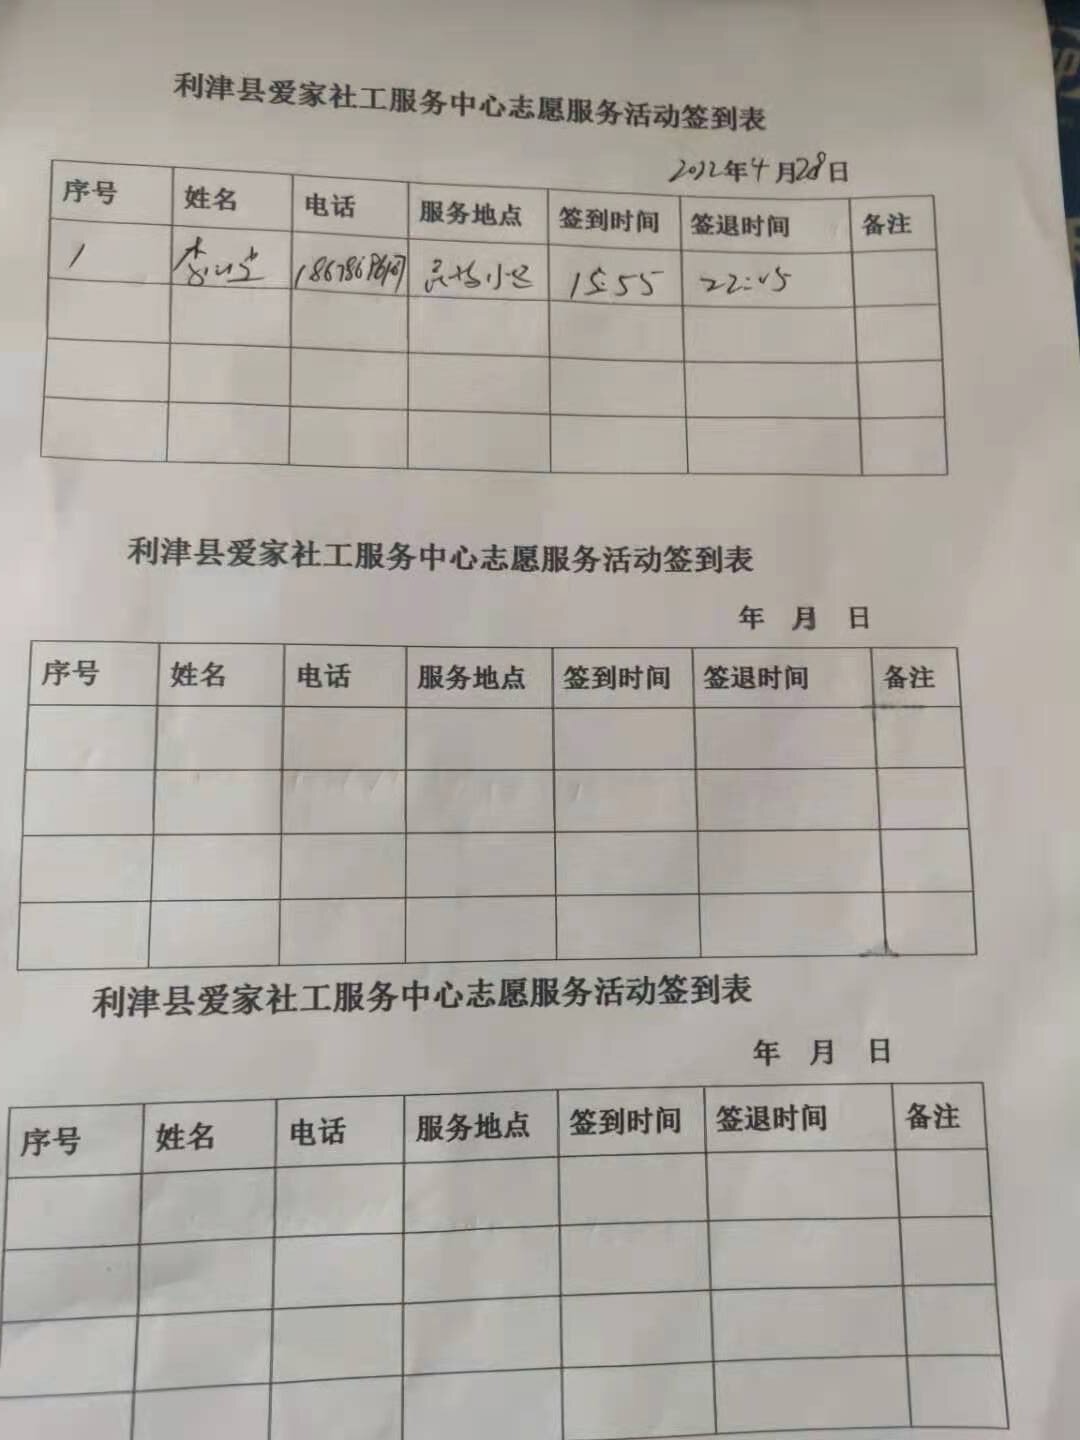 利津县爱家社工服务中心志愿服务活动签到表
2022年4月28日
序号 姓名 电话 服务地点 签到时间 签退时间 备注
1 15:55
利津县爱家社工服务中心志愿服务活动签到表
年 月 日
序号 姓名 电话 服务地点 签到时间 签退时间 备注
利津县爱家社工服务中心志愿服务活动签到表
年 月 日
序号 姓名 电话 服务地点 签到时间 签退时间 备注